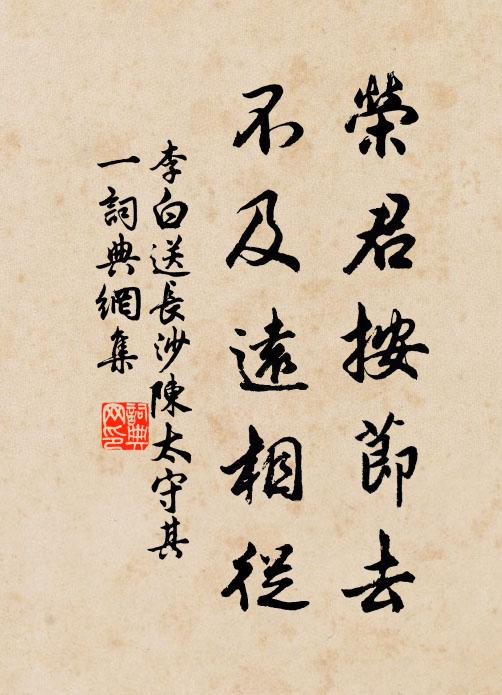 榮君按節去
不及遠相從
李白送長沙陳太守其
一詞典網集
詞典網印